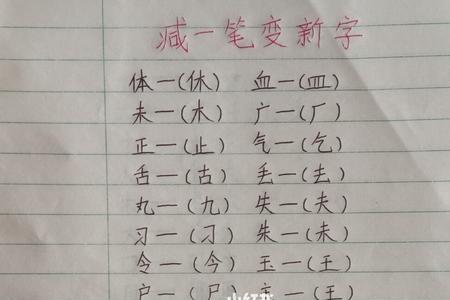 减一笔变新字
体一(休) 血一(皿)
未一(木) 广一(厂)
正一(止) 气一(乞)
舌一(古) 丢一(去)
丸一(九) 失一(夫)
习一(刁) 朱一(未)
令一(今) 玉一(王)
户一(尸) 主一(王)
小红书